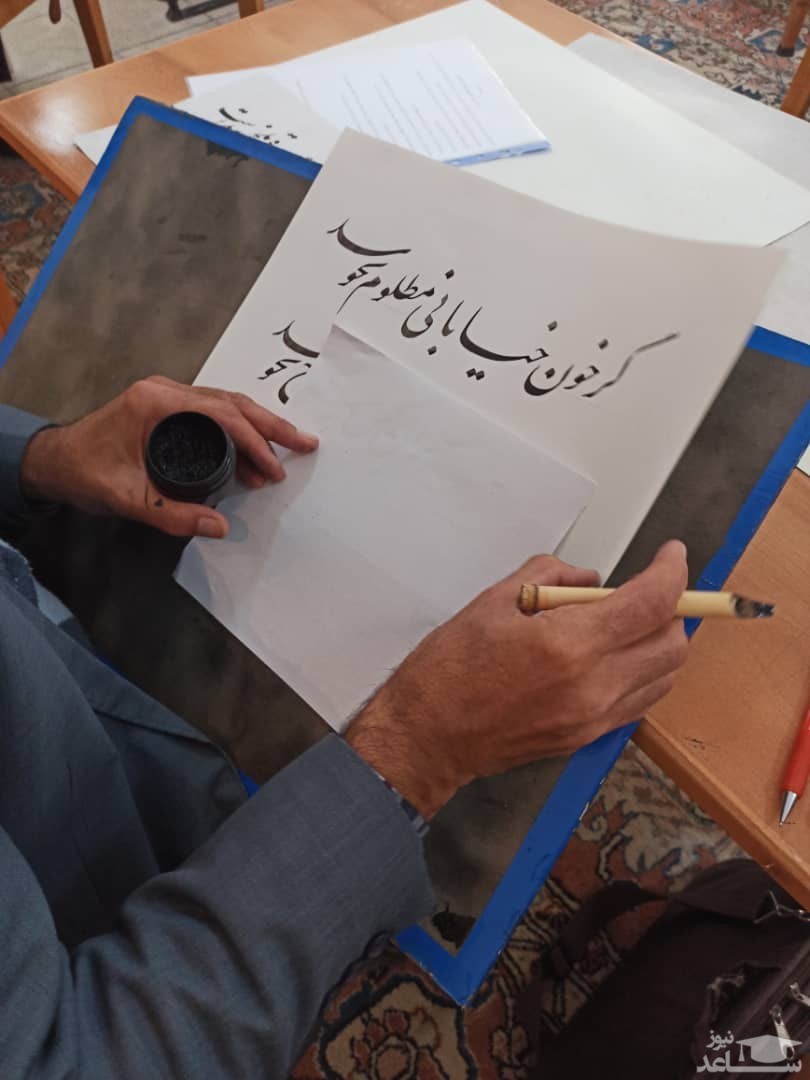 گر خون خیابانی مظلوم بجوشد
بجوشد
ساعد نیوز